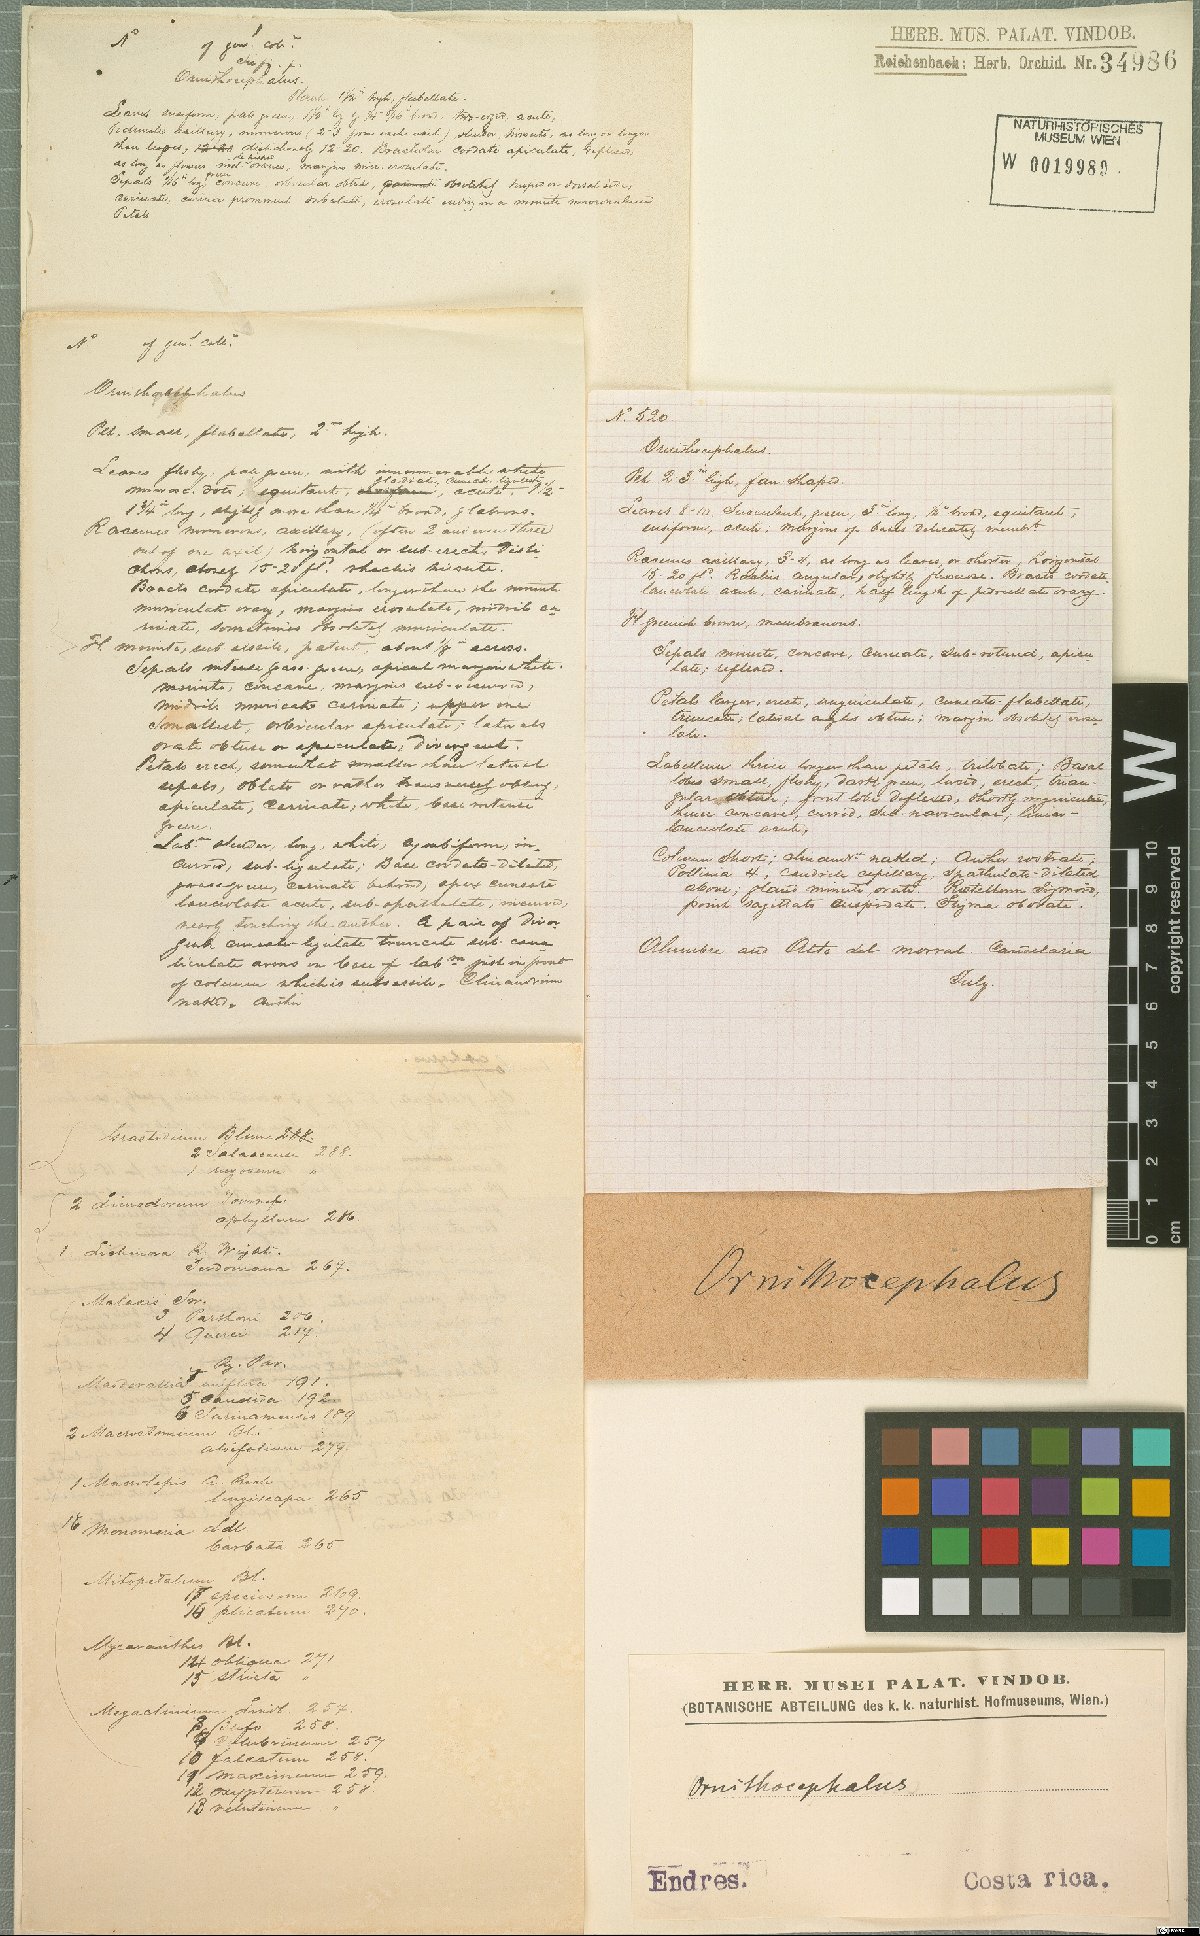 HERB. MUS. PALAT. VINDOB.
Reichenbach: Herb. Orchid. Nr. 34986
NATURHISTORISCHES
MUSEUM WIEN
W 0019989
No of genl. coln.
Ornithocephalus.
Leaves ensiform, pale green,
than leaves, distichously 12-20. Bracteoles cordate apiculate, reflexed,
Petals
No of genl. coln.
Ornithocephalus
Pld. small, flabellate, 2 in high.
Leaves fleshy, pale green, with innumerable white
minute dots, equitant, acute, 1½-
1¾ in long, slightly more than ¼ in broad, glabrous.
Racemes numerous, axillary, (often 2 and even three
out of one axil) horizontal or sub-erect, disti
chous, closely 15-20 fld. rhachis hirsute.
Bracts cordate apiculate, longer than the minute
muriculate ovary, margins erosulate, midrib ca
rinate, sometimes obsoletely muriculate.
Fl. minute, sub sessile, patent, about ⅛ in across.
Sepals intense grass green, apical margins white.
minute, concave, margins sub-recurved,
midrib muricate carinate; upper one
smallest, orbicular apiculate; laterals
ovate obtuse or apiculate, divergent.
Petals erect, somewhat smaller than lateral
sepals, oblate or rather transversely oblong,
apiculate, carinate; white, base intense
green.
Labm slender, long, white, cymbiform, in-
curved, sub-ligulate; Base cordate-dilated,
grass green, carinate behind, apex cuneate
lanceolate acute, sub-spathulate, incurved,
nearly touching the anther. A pair of diver
gent cuneate-ligulate truncate sub cana
liculate arms on base of labm just in front
of column which is subsessile. Clinandrium
naked. Anther
No 520
Ornithocephalus.
Pld 2-3 in high, fan shaped.
Leaves 8-10, succulent, green, 3 in long, ½ in broad, equitant;
ensiform, acute; margins of base delicately membt
Racemes axillary, 3-4, as long as leaves, or shorter, horizontal
15-20 fld. Rachis angular, slightly flexuose. Bracts cordate
lanceolate acute, carinate, half length of pedicellate ovary.
Fl greenish brown, membranous.
Sepals minute, concave, cuneate, sub-rotund, apicu
late; reflexed.
Petals larger, erect, unguiculate, cuneate-flabellate,
truncate; lateral angles obtuse; margin obsoletely erosu
late.
Labellum thrice longer than petals, trilobate; Basal
lobes small, fleshy, dark green, erect, trian
gular obtuse; front lobe deflexed, shortly unguiculate,
hence concave, curved, sub navicular, linear-
lanceolate acute,
Column short; clinandr. naked; Anther rostrate;
Pollinia 4, caudicle capillary, spathulate-dilated
above; gland minute ovate. Rostellum sigmoid,
point sagittate cuspidate. Stigma obovate.
Alumbre and Alto del morral Candelaria
July.
Grastidium Blume 288.
2 Salaccense 288.
1 rugosum "
2 Limodorum Tournef.
aphyllum 286
1 Lichinora R. Wight.
267.
Malaxis Sw.
3 Parthoni 206.
4 217.
Rz. Pav.
Masdevallia uniflora 191.
5 candida 192
6 Surinamensis 189
2 Macrostomium Bl.
aloefolium 279.
1 Macrolepis A. Rich
longiscapa 265
16 Monomeria Ldl
barbata 265
Mitopetalum Bl.
17 speciosum 269.
18 plicatum 270.
Mycaranthes Bl.
14 obliqua 271
15 stricta "
Megaclinium Lindl. 257.
8 Bufo 258.
9 colubrinum 257
10 falcatum 258.
11 maximum 259.
12 oxypterum 258
13 velutinum "
Ornithocephalus
W
0 1 2 3 4 5 6 7 8 9 10
cm
copyright reserved
HERB. MUSEI PALAT. VINDOB.
(BOTANISCHE ABTEILUNG des k. k. naturhist. Hofmuseums, Wien.)
Ornithocephalus
Endres. Costa rica.